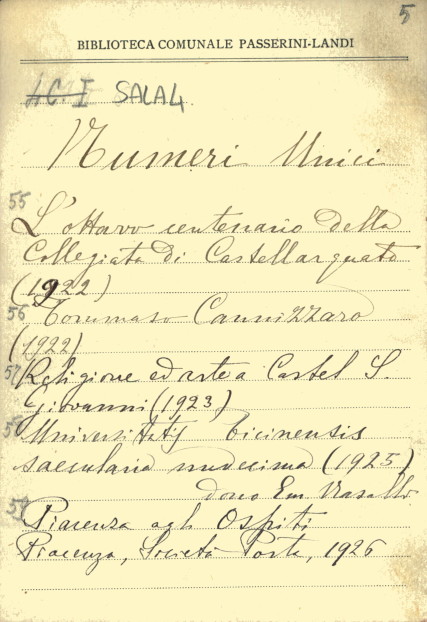 5
BIBLIOTECA COMUNALE PASSERINI-LANDI
4C. I SALA 4
Numeri Unici
55
L'ottavo centenario della
Collegiata di Castellarquato
(1922)
56 Tommaso Cannizzaro
(1922)
57 Religione ed arte a Castel S.
Giovanni (1923)
Universitatis ticinensis
saecularia undecima (1925)
dono Em
Piacenza agli Ospiti
Piacenza, Società Porta, 1926